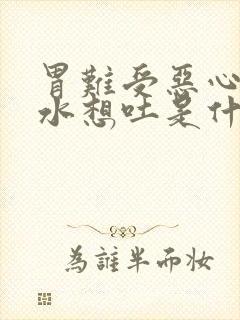 胃難受惡心
水想吐是什
為誰半而妝